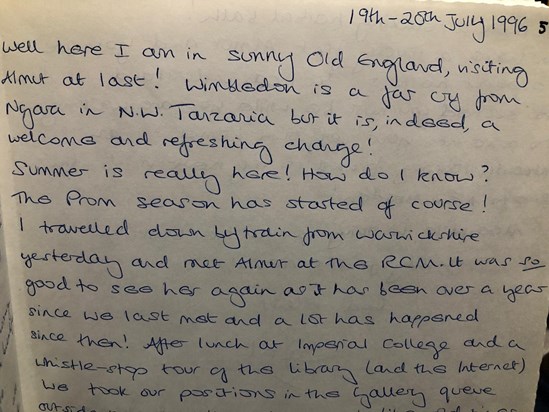 19th-28th July 1996 5
Well here I am in sunny Old England, visiting
Almut at last! Wimbledon is a far cry from
Ngara in N.W. Tanzania but it is, indeed, a
welcome and refreshing change!
Summer is really here! How do I know?
The Prom season has started of course!
I travelled down by train from Warwickshire
yesterday and met Almut at the RCM. It was so
good to see her again as it has been over a year
since we last met and a lot has happened
since then! After lunch at Imperial College and a
whistle-stop tour of the library (and the Internet)
we took our positions in the Gallery queue
outside